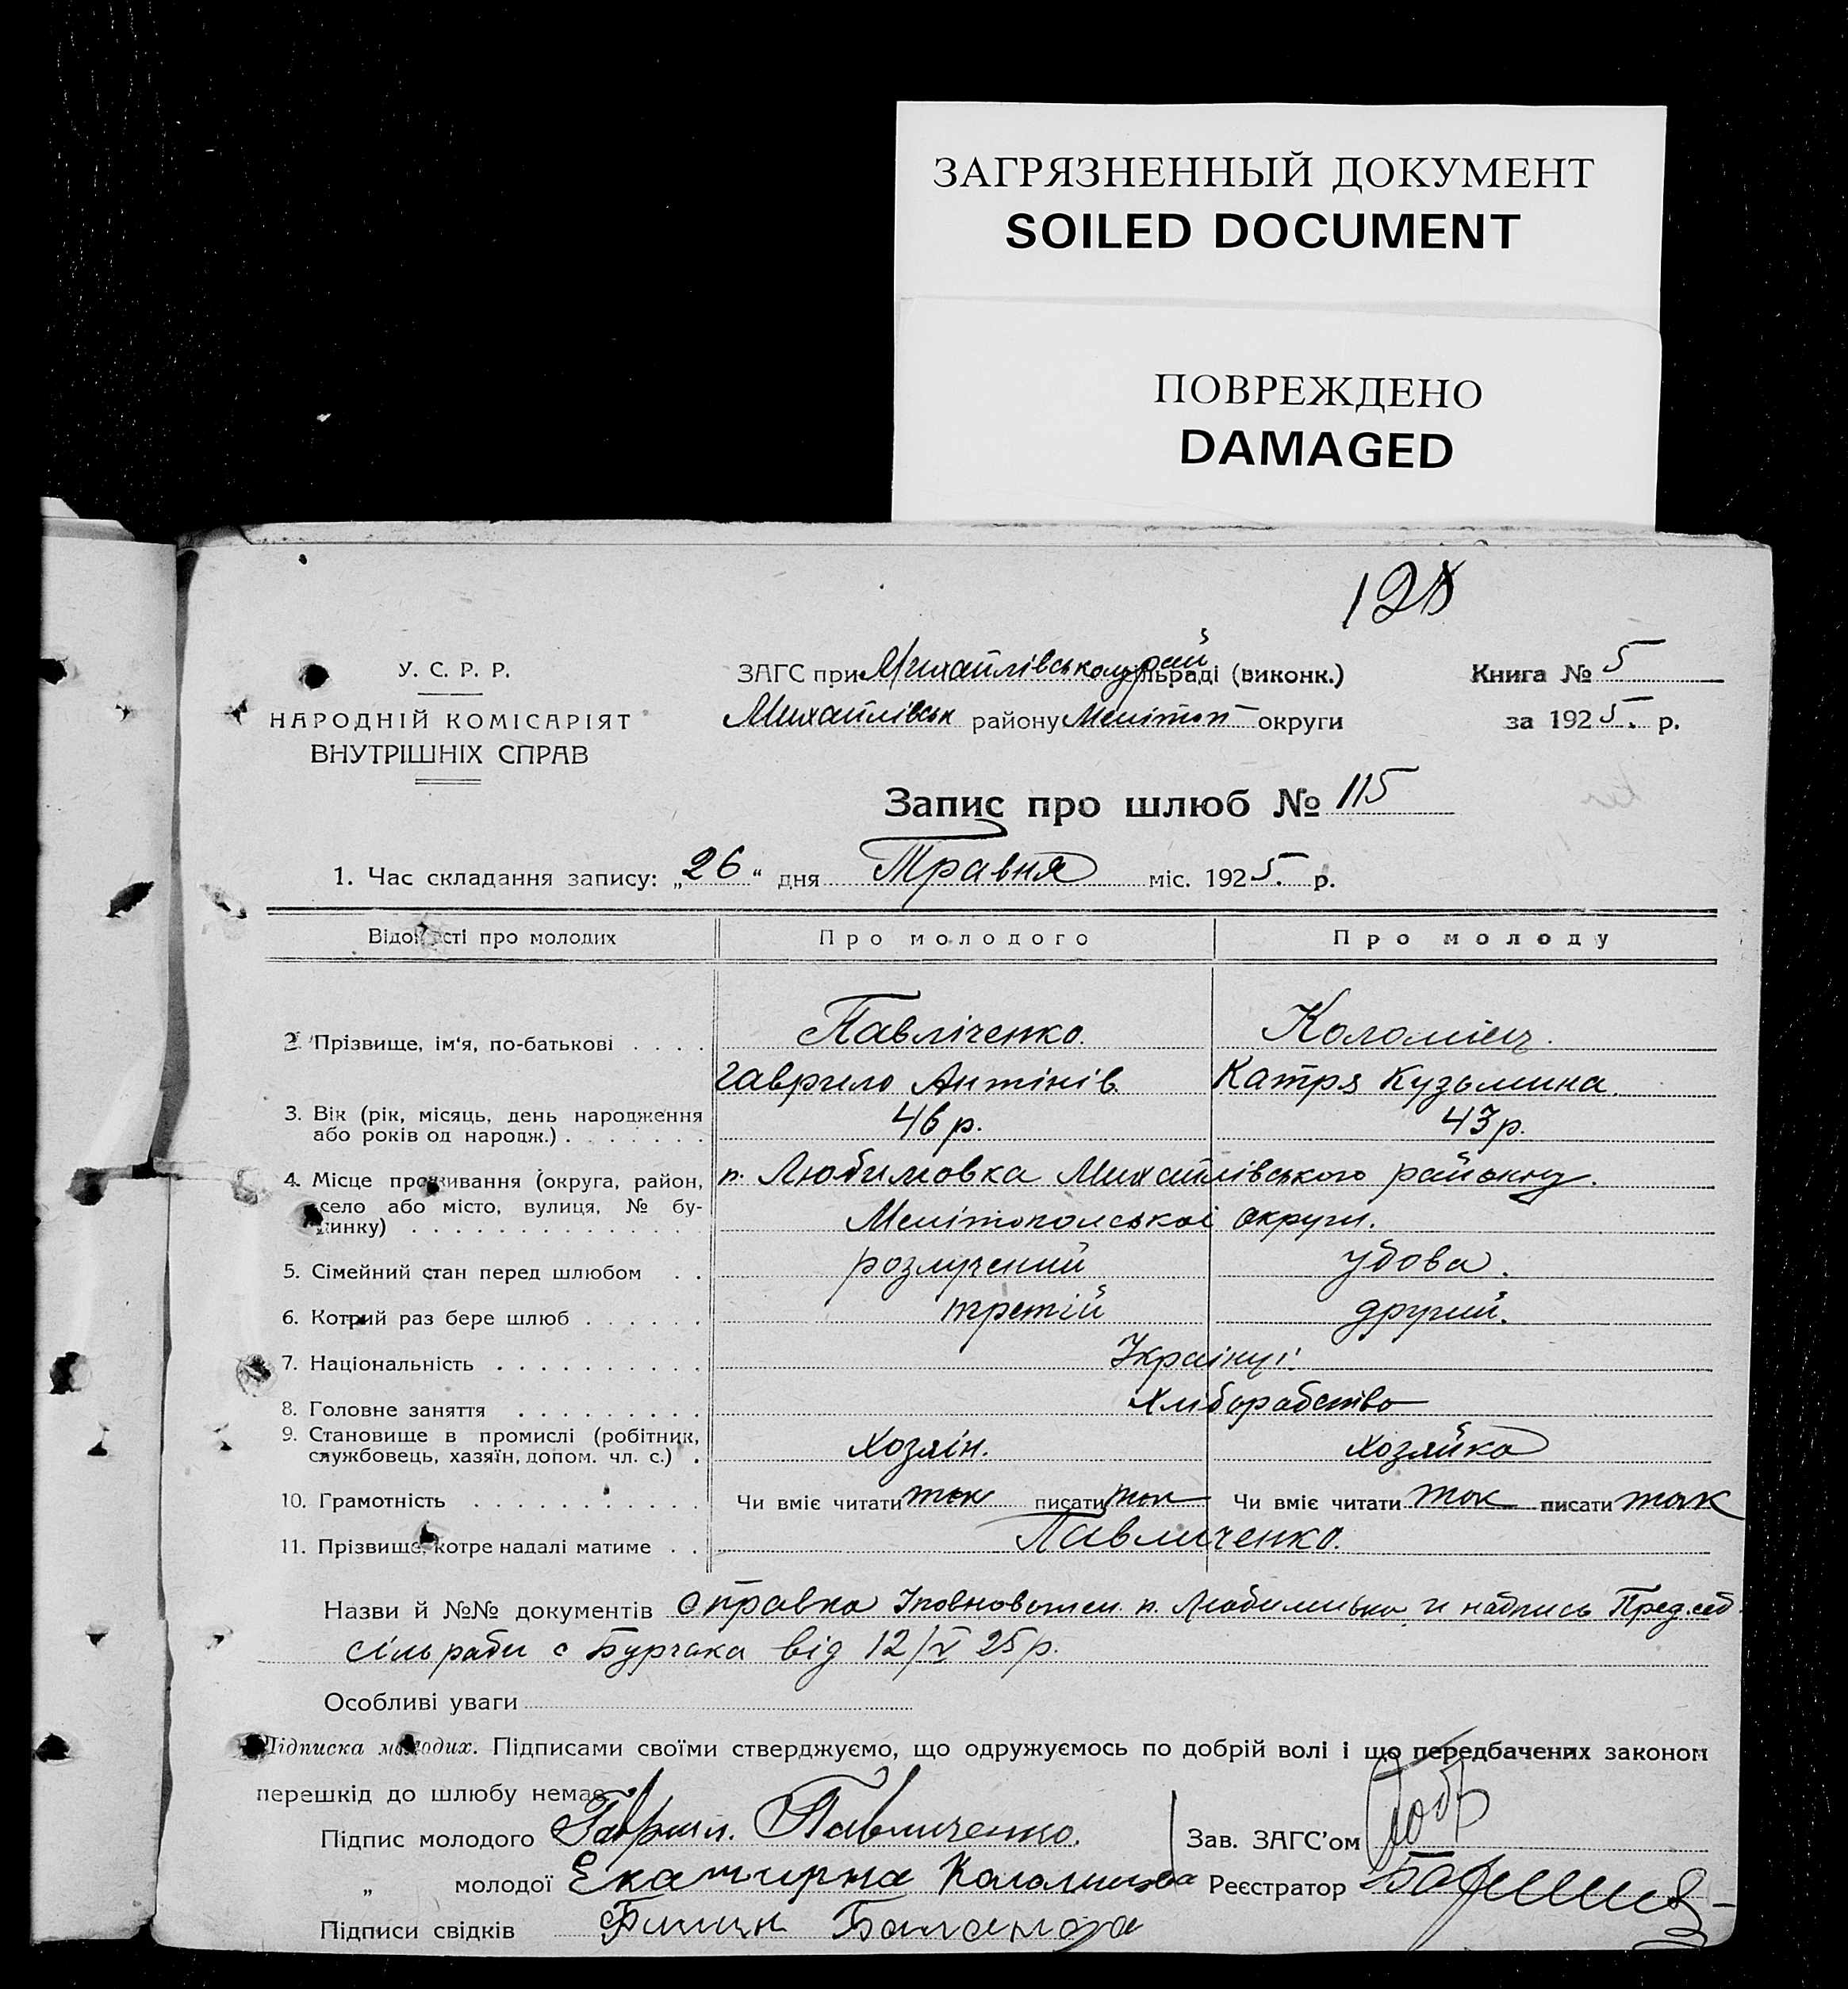 ЗАГРЯЗНЕННЫЙ ДОКУМЕНТ
SOILED DOCUMENT
ПОВРЕЖДЕНО
DAMAGED
128
У. С. Р. Р.
НАРОДНІЙ КОМІСАРІЯТ
ВНУТРІШНІХ СПРАВ
ЗАГС при Михайлівському рай сільраді (виконк.)
Михайлівськ району Мелітоп округи
Книга № 5
за 1925. р.
Запис про шлюб № 115
1. Час складання запису: „26“ дня Травня міс. 1925. р.
Відомості про молодих Про молодого Про молоду
2. Прізвище, ім'я, по-батькові . . . . Павліченко. Коломіец.
Гаврило Антінів. Катря Кузьмина.
3. Вік (рік, місяць, день народження
або років од народж.) . . . . . . . 46 р. 43 р.
4. Місце проживання (округа, район, п. Любимовка Михайлівського району.
село або місто, вулиця, № бу-
динку) . . . . . . . . . . . . . Мелітопольскої округи.
5. Сімейний стан перед шлюбом . . розлучений удова.
6. Котрий раз бере шлюб . . . . . . третій другий.
7. Національність . . . . . . . . . . Українці.
8. Головне заняття . . . . . . . . . Хлiборабство
9. Становище в промислі (робітник,
службовець, хазяїн, допом. чл. с.) . Хозяін. хозяйка
10. Грамотність . . . . . . . . . . . Чи вміє читати так писати так Чи вміє читати так писати так
11. Прізвище, котре надалі матиме . . Павличенко.
Назви й №№ документів Справка Уповноважен п. Любимивка и надпись Пред.
сільради с Бурчака від 12/V 25 р.
Особливі уваги
Підписка молодих. Підписами своїми стверджуємо, що одружуємось по добрій волі і що передбачених законом
перешкід до шлюбу немає
Підпис молодого Гаврил. Павличенко. Зав. ЗАГС'ом
„ молодої Екатирна Коломицова Реєстратор
Підписи свідків Филип